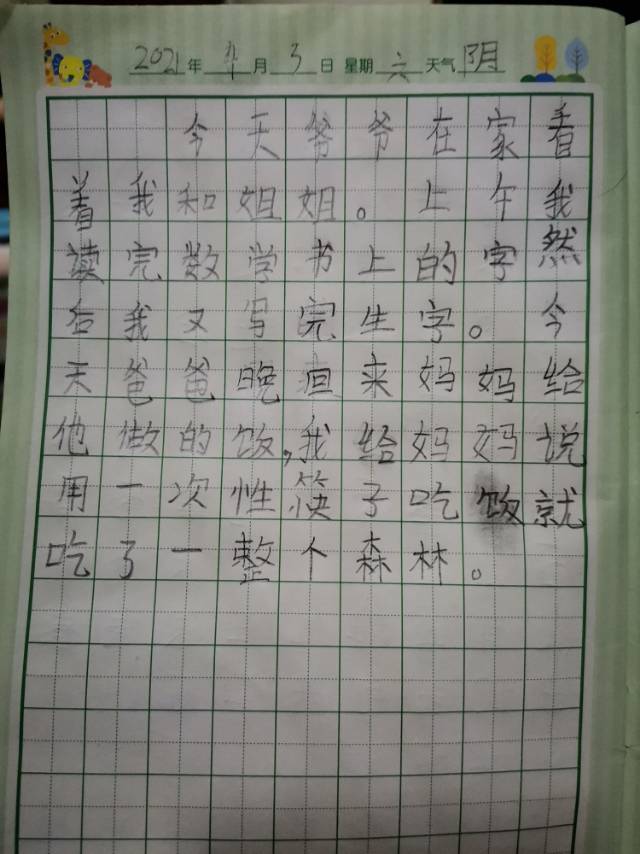 2021年 月 3日 星期六 天气阴
今天爷爷在家看
着我和姐姐。上午我
读完数学书上的字然
后我又写完生字。今
天爸爸晚来妈妈给
他做的饭,我给妈妈说
用一次性筷子吃饭就
吃了一整个森林。